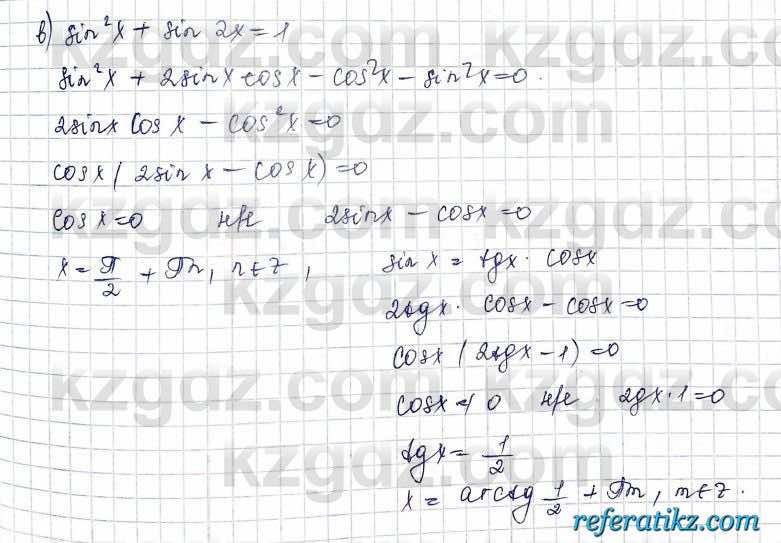 в) sin²x + sin 2x = 1
sin²x + 2sinx cosx - cos²x - sin²x = 0.
2sinx cos x - cos²x = 0
cosx (2sin x - cos x) = 0
cos x = 0 2sinx - cosx = 0
x = π/2 + πn, n∈z,
sin x = tgx · cosx
2tgx · cosx - cosx = 0
cosx (2tgx - 1) = 0
cosx ≠ 0 2gx · 1 = 0
tgx = 1/2
x = arctg 1/2 + πn, n∈z.
kzgdz.com
referatikz.com